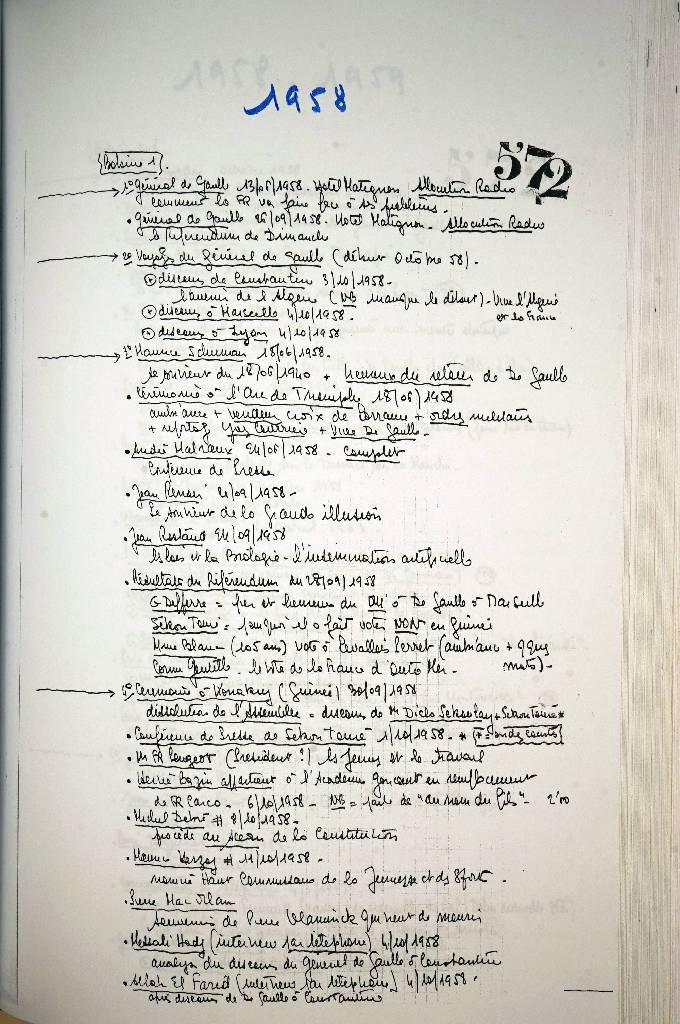 1958
572
{Bobine 1}.
1° général de Gaulle 13/06/1958. Hotel Matignon Allocution Radio
comment la FR va faire face à ses problèmes.
• général de Gaulle 26/09/1958. Hotel Matignon. Allocution Radio
le Referendum de Dimanche
2° Voyages du Général de Gaulle (début Octobre 58).
discours de Constantine 3/10/1958.
l'avenir de l'Algérie (NB manque le début). Vive l'Algérie et la France
discours à Marseille 4/10/1958.
discours à Lyon 4/10/1958
3° Maurice Schuman 18/06/1958.
le souvenir du 18/06/1940 + heureux du retour de De Gaulle
• Cérémonie à l'Arc de Triomphe 18/06/1958
ambiance + vendeur croix de Lorraine + ordres militaires
+ reportage + Vive De Gaulle.
• André Malraux 24/06/1958. complet
Conférence de Presse
• Jean Renoir 4/09/1958 -
Le souvenir de la Grande illusion
• Jean Rostand 24/09/1958
et la Biologie - L'insémination artificielle
• Résultats du Référendum du 28/09/1958
G Defferre = fier et heureux du OUI à De Gaulle à Marseille
Sékou Touré = pourquoi il a fait voter NON en Guinée
Mme Blanc (105 ans) vote à Levallois Perret (ambiance + qqes mots) -
Cornu Gentille. le vote de la France d'Outre Mer.
5° Ceremonie à Konakry (Guinée) 30/09/1958
dissolution de l'Assemblée = discours de Mr Diallo + Sekou Touré *
• Conférence de Presse de Sekou Touré 1/10/1958 - * (* = ondes courtes)
• Mr FR Peugeot (President ?) les Jeunes et le travail
• Hervé Bazin appartient à l'Académie goncourt en remplacement
de FR Carco - 6/10/1958 - NB = parle de "au nom du fils" - 2'00
• Michel Debré # 8/10/1958 -
procède au sceau de la Constitution
• Maurice Herzog # 11/10/1958 -
nommé Haut Commissaire de la Jeunesse et des Sport -
• Pierre Mac Orlan
souvenirs de Vlaminck qui vient de mourir
• Messali Hadj (interview par téléphone) 4/10/1958
analyse du discours du general de Gaulle à Constantine
• Allah El Farid (interview par téléphone) 4/10/1958 -
après discours de De Gaulle à Constantine